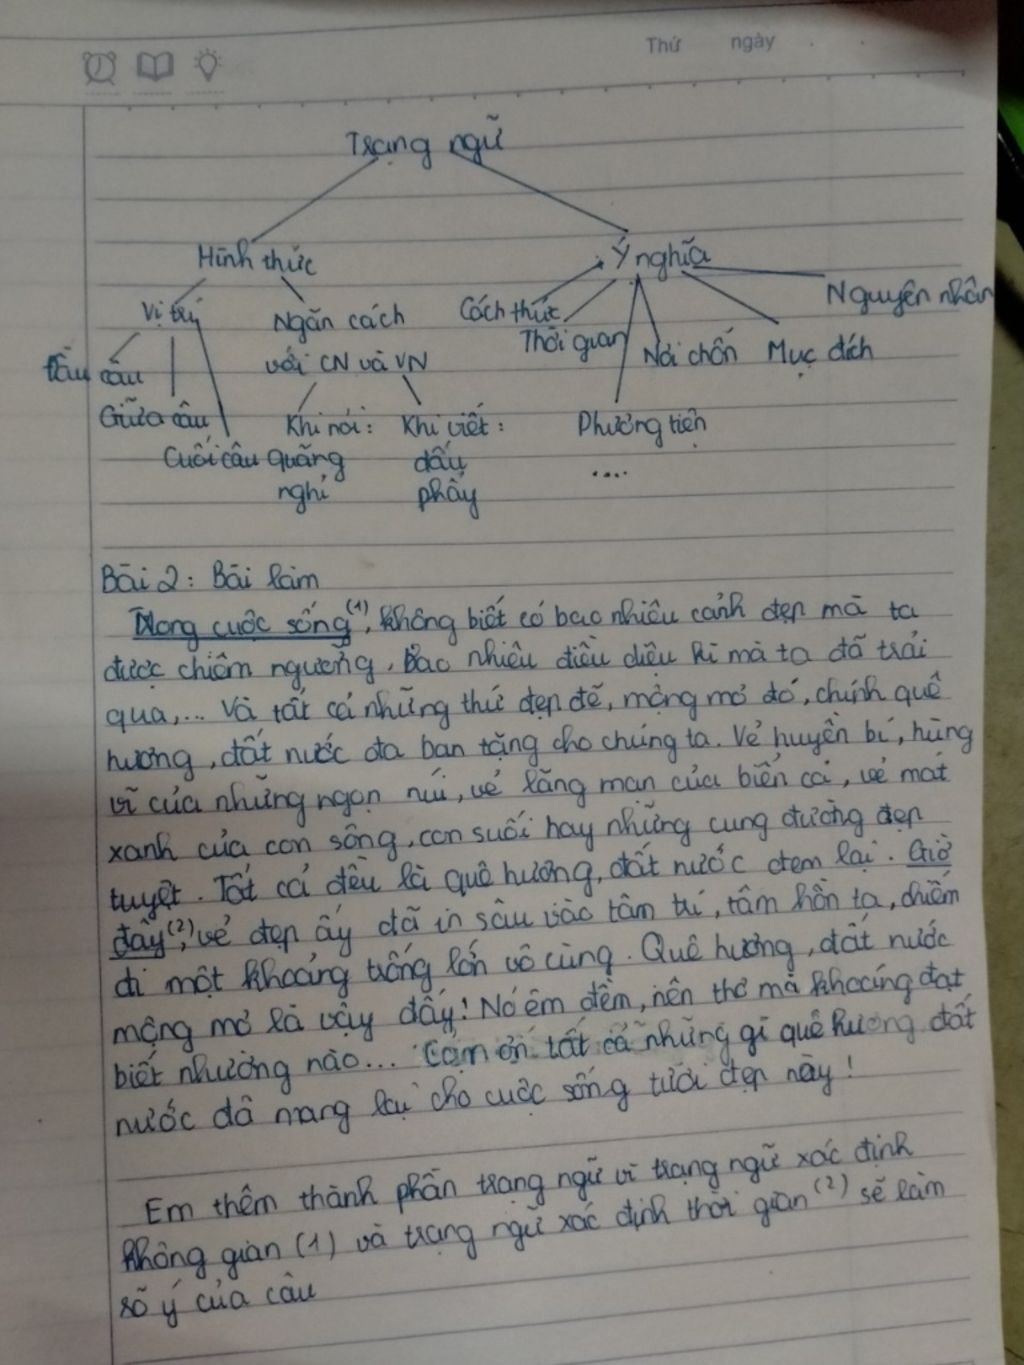 Thứ ngày
Trạng ngữ
Hình thức
Ý nghĩa
Vị trí
Ngăn cách
với CN và VN
Cách thức
Thời gian
Nơi chốn
Mục đích
Nguyên nhân
Đầu câu
Giữa câu
Cuối câu
Khi nói:
quãng
nghỉ
Khi viết:
dấu
phẩy
Phương tiện
....
Bài 2: Bài làm
Trong cuộc sống(1), không biết có bao nhiêu cảnh đẹp mà ta
được chiêm ngưỡng, Bao nhiêu điều diệu kì mà ta đã trải
qua,... Và tất cả những thứ đẹp đẽ, mộng mơ đó, chính quê
hương, đất nước đa ban tặng cho chúng ta. Vẻ huyền bí, hùng
vĩ của những ngọn núi, vẻ lãng mạn của biển cả, vẻ mát
xanh của con sông, con suối hay những cung đường đẹp
tuyệt. Tất cả đều là quê hương, đất nước đem lại. Giờ
đây(2), vẻ đẹp ấy đã in sâu vào tâm trí, tâm hồn ta, chiếm
đi một khoảng trống lớn vô cùng. Quê hương, đất nước
mộng mơ là vậy đấy! Nó êm đềm, nên thơ mà khoáng đạt
biết nhường nào... Cảm ơn tất cả những gì quê hương đất
nước đã mang lại cho cuộc sống tươi đẹp này!
Em thêm thành phần trạng ngữ vì trạng ngữ xác định
không gian (1) và trạng ngữ xác định thời gian (2) sẽ làm
rõ ý của câu